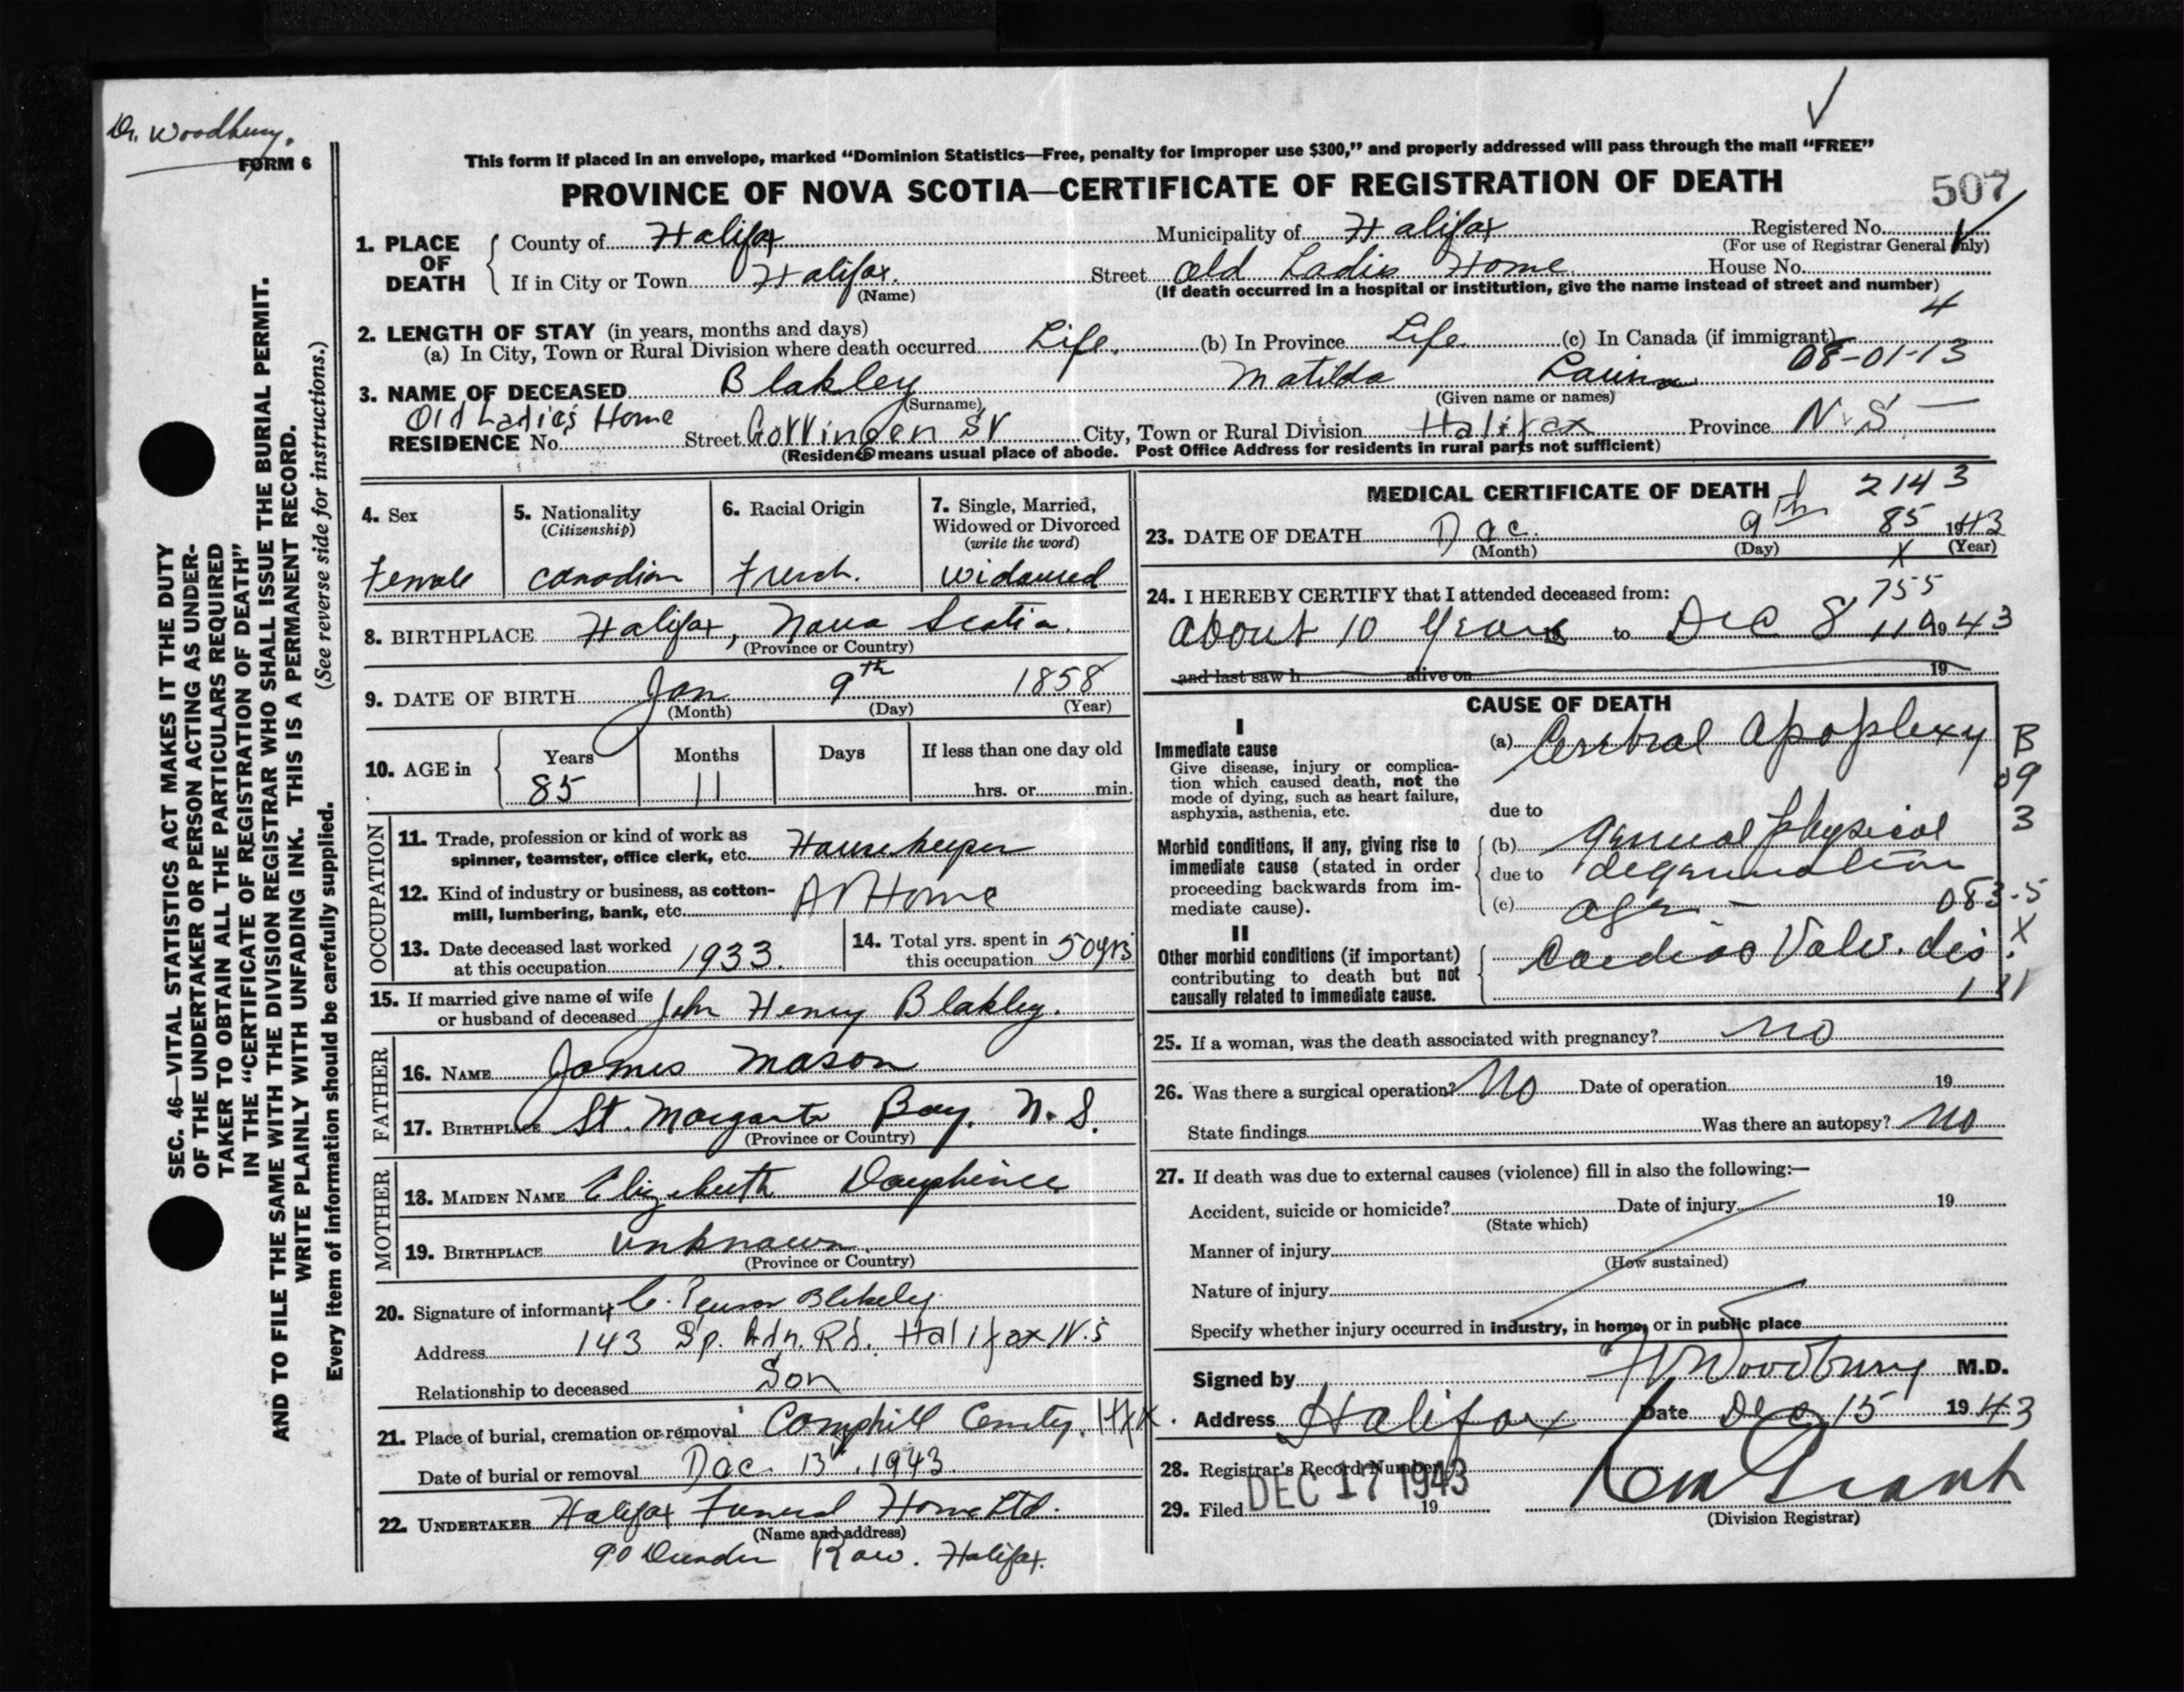 Dr. Woodbury.
FORM 6
This form if placed in an envelope, marked “Dominion Statistics—Free, penalty for improper use $300,” and properly addressed will pass through the mail “FREE”
PROVINCE OF NOVA SCOTIA—CERTIFICATE OF REGISTRATION OF DEATH
507
1. PLACE OF DEATH
County of Halifax Municipality of Halifax Registered No.
(For use of Registrar General only)
If in City or Town Halifax. Street Old Ladies Home House No.
(Name) (If death occurred in a hospital or institution, give the name instead of street and number)
4
2. LENGTH OF STAY (in years, months and days)
(a) In City, Town or Rural Division where death occurred Life. (b) In Province Life. (c) In Canada (if immigrant)
08-01-13
3. NAME OF DECEASED Blakley Matilda
(Surname) (Given name or names)
Old Ladies Home
RESIDENCE No. Street Gottingen St City, Town or Rural Division Halifax Province N.S.
(Residence means usual place of abode. Post Office Address for residents in rural parts not sufficient)
SEC. 46—VITAL STATISTICS ACT MAKES IT THE DUTY
OF THE UNDERTAKER OR PERSON ACTING AS UNDER-
TAKER TO OBTAIN ALL THE PARTICULARS REQUIRED
IN THE “CERTIFICATE OF REGISTRATION OF DEATH”
AND TO FILE THE SAME WITH THE DIVISION REGISTRAR WHO SHALL ISSUE THE BURIAL PERMIT.
WRITE PLAINLY WITH UNFADING INK. THIS IS A PERMANENT RECORD.
Every item of information should be carefully supplied. (See reverse side for instructions.)
4. Sex
Female
5. Nationality
(Citizenship)
Canadian
6. Racial Origin
French.
7. Single, Married,
Widowed or Divorced
(write the word)
Widowed
8. BIRTHPLACE Halifax, Nova Scotia.
(Province or Country)
9. DATE OF BIRTH Jan 9th 1858
(Month) (Day) (Year)
10. AGE in
Years Months Days If less than one day old
85 11 hrs. or min.
OCCUPATION
11. Trade, profession or kind of work as
spinner, teamster, office clerk, etc. Housekeeper
12. Kind of industry or business, as cotton-
mill, lumbering, bank, etc. At Home
13. Date deceased last worked
at this occupation 1933.
14. Total yrs. spent in
this occupation 50 yrs
15. If married give name of wife
or husband of deceased John Henry Blakley.
FATHER
16. NAME James Mason
17. BIRTHPLACE St. Margarets Bay. N.S.
(Province or Country)
MOTHER
18. MAIDEN NAME Elizabeth Dauphinee
19. BIRTHPLACE unknown.
(Province or Country)
20. Signature of informant C. Blakeley
Address 143 Sp. Gdn. Rd. Halifax N.S
Relationship to deceased Son
21. Place of burial, cremation or removal Camphill Cemty. Hfx.
Date of burial or removal Dec. 13, 1943.
22. UNDERTAKER Halifax Funeral Home Ltd.
(Name and address)
90 Row. Halifax.
MEDICAL CERTIFICATE OF DEATH 2143
85
23. DATE OF DEATH Dec. 9th 1943
(Month) (Day) (Year)
X
755
24. I HEREBY CERTIFY that I attended deceased from:
About 10 years to Dec 8 11 1943
and last saw h alive on 19
CAUSE OF DEATH
I
Immediate cause
Give disease, injury or complica-
tion which caused death, not the
mode of dying, such as heart failure,
asphyxia, asthenia, etc.
(a) Cerebral Apoplexy
B
09
3
due to
Morbid conditions, if any, giving rise to
immediate cause (stated in order
proceeding backwards from im-
mediate cause).
(b) general physical
due to degeneration
(c) age.
083.5
X
II
Other morbid conditions (if important)
contributing to death but not
causally related to immediate cause.
Cardiac Valv. dis.
25. If a woman, was the death associated with pregnancy? no
26. Was there a surgical operation? No Date of operation 19
State findings Was there an autopsy? No
27. If death was due to external causes (violence) fill in also the following:—
Accident, suicide or homicide? Date of injury 19
(State which)
Manner of injury
(How sustained)
Nature of injury
Specify whether injury occurred in industry, in home, or in public place
Signed by Woodbury M.D.
Address Halifax Date Dec 15 1943
28. Registrar's Record Number
29. Filed DEC 17 1943 19
(Division Registrar)